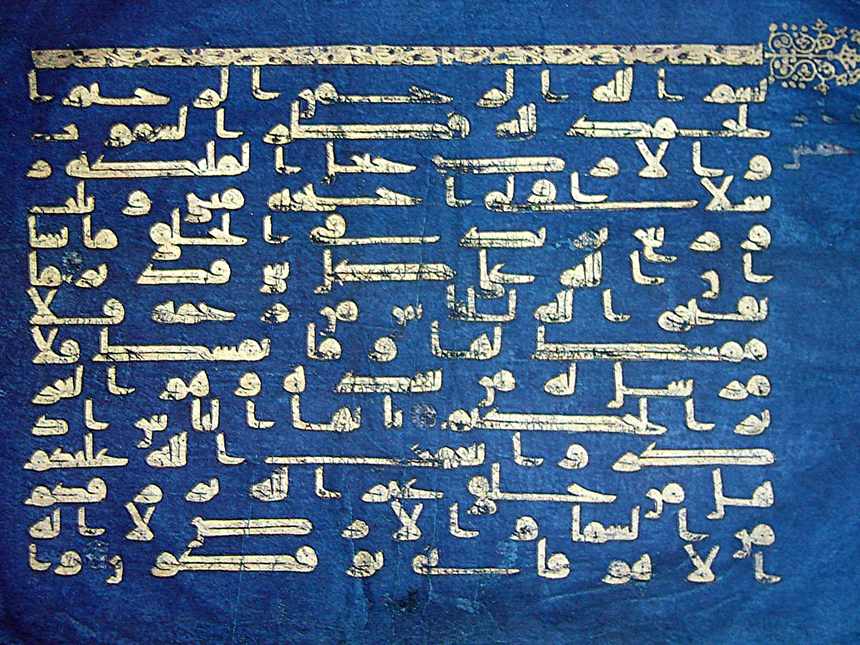 بسم الله الرحمن الرحيم ا
لحمد لله فطر السموت
والارض جعل الملئكة ر
سلا اولى اجنحة مثنى وثلث
وربع يزيد فى الخلق ما يشا
ان الله على كل شى قدير ما
يفتح الله للناس من رحمة فلا
ممسك لها وما يمسك فلا
مرسل له من بعده وهو العز
يز الحكيم يايها الناس اذ
كروا نعمت الله عليكم
هل من خلق غير الله يرزقكم
من السما والارض لا اله
الا هو فانى توفكون وان